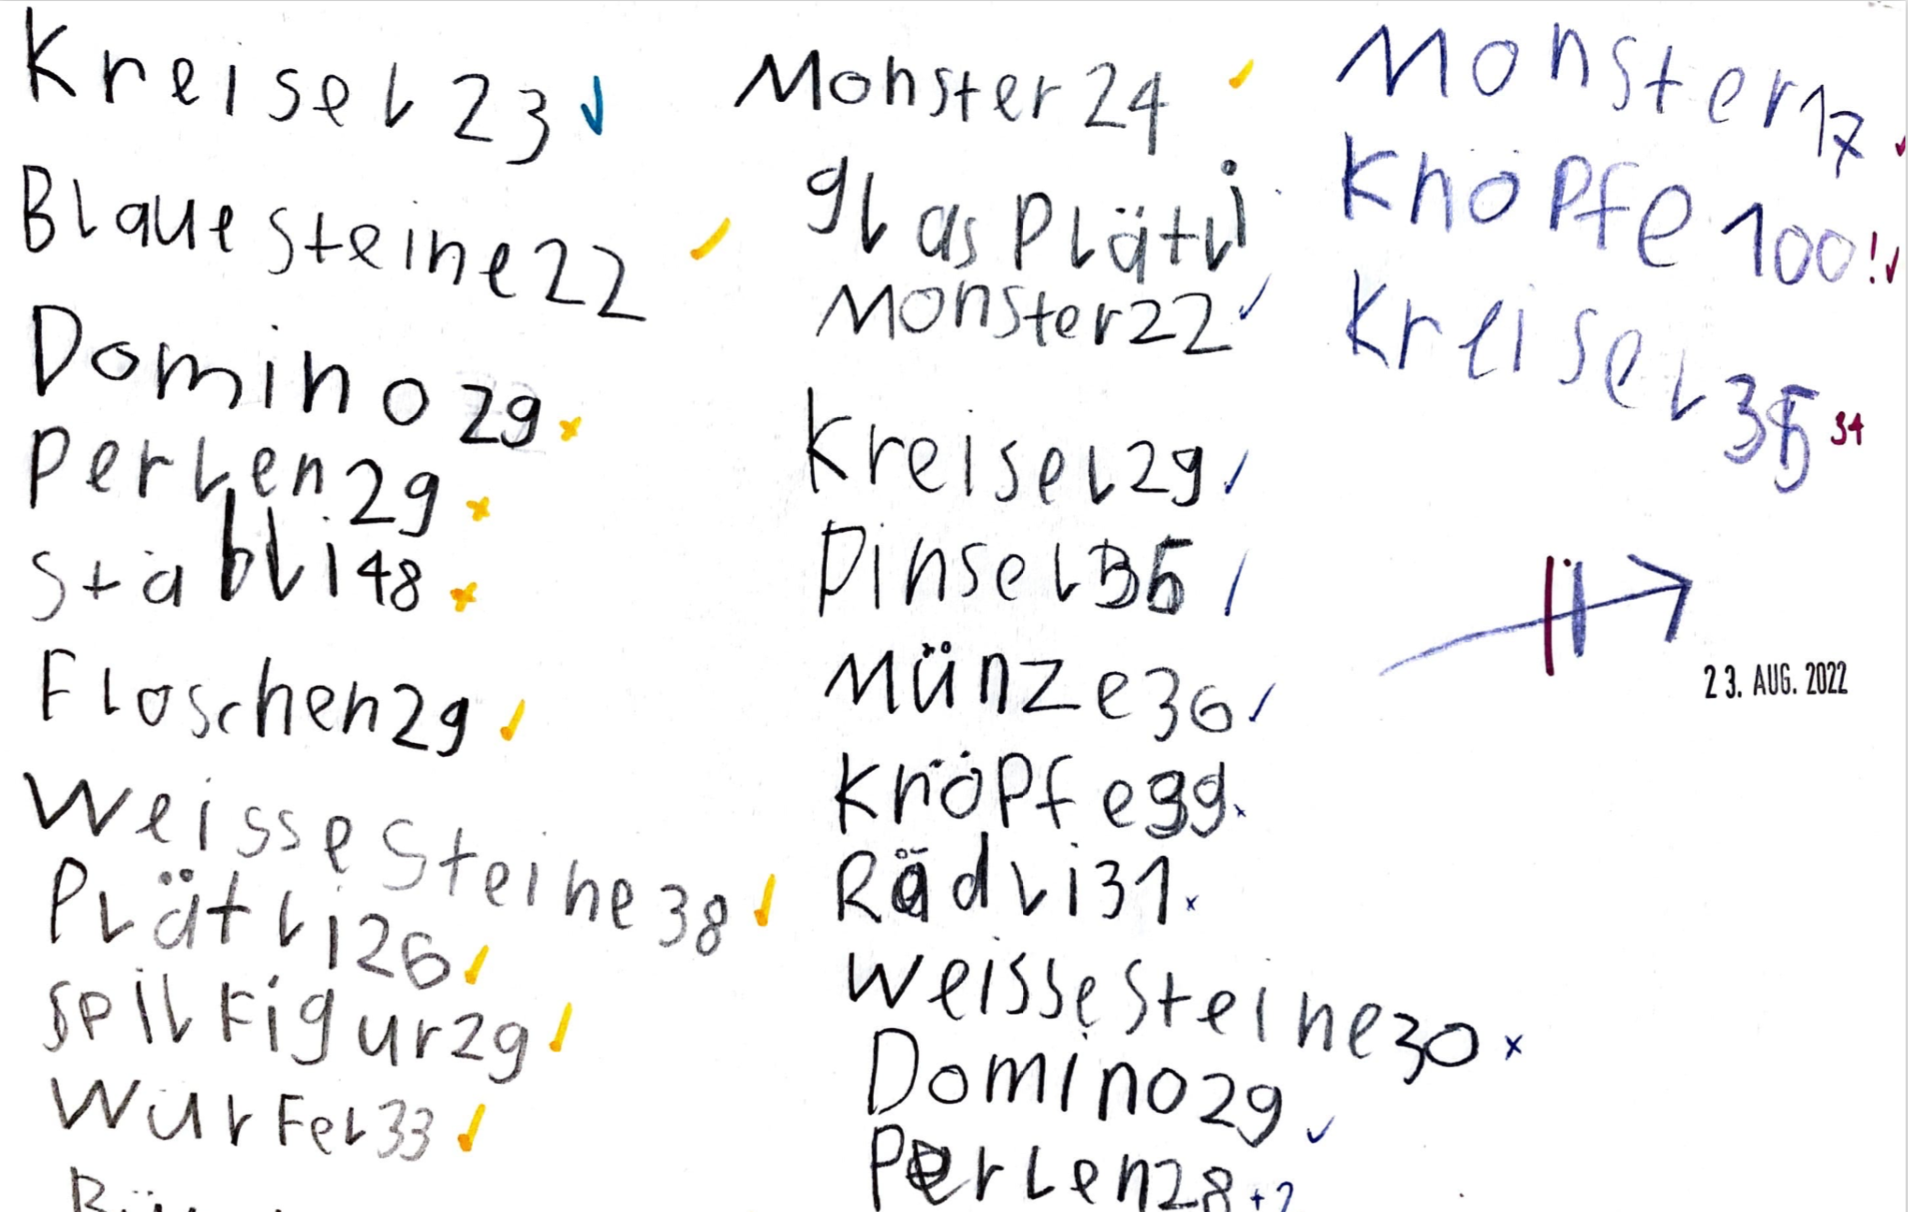 Kreisel 23
Blaue steine 22
Domino 29
Perlen 29
Stäbli 48
Floschen 29
Weisse Steine 38
Plätli 26
Spilfigur 29
Würfel 33
Monster 24
glas Plätli
Monster 22
Kreisel 29
Pinsel 35
Münze 36
Knöpfe 99
Rädli 31
weisse Steine 30
Domino 29
Perlen 28 +2
Monster 17
Knöpfe 100!
Kreisel 35 34
23. AUG. 2022